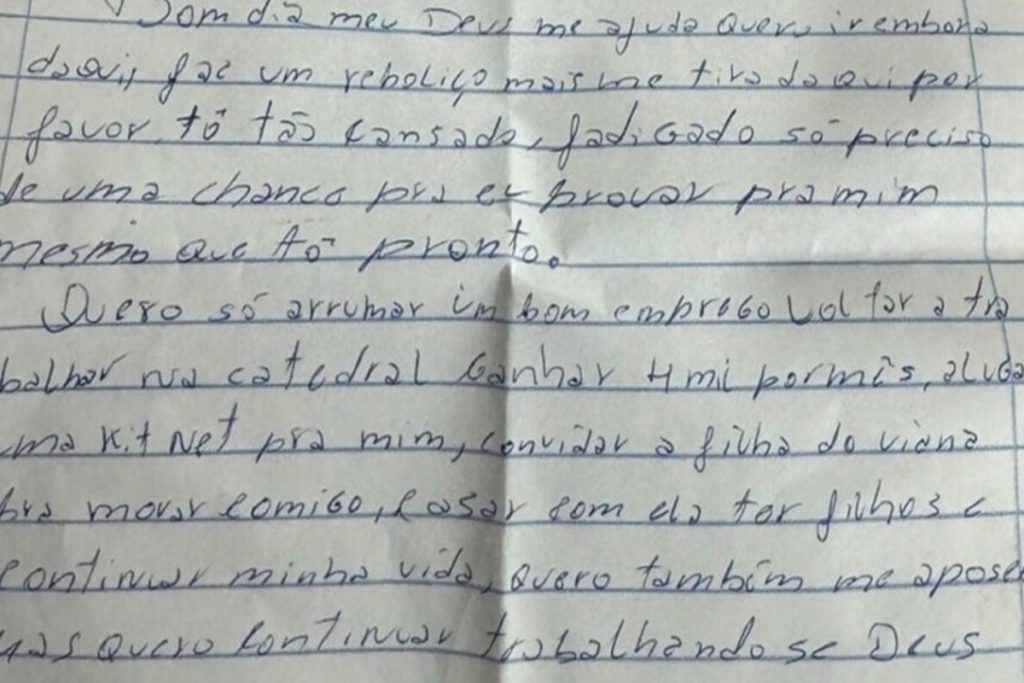 Bom dia meu Deus me ajuda quero ir embora
daqui, faz um reboliço mais me tira daqui por
favor, tô tão cansado, fadigado só preciso
de uma chance pra eu provar pra mim
mesmo que tô pronto.
Quero só arrumar um bom emprego voltar a tra
balhar na catedral ganhar 4 mil por mês, aluga
uma kit Net pra mim, convidar a filha do viana
pra morar comigo, casar com ela ter filhos e
continuar minha vida, quero também me aposen
mas quero continuar trabalhando se Deus